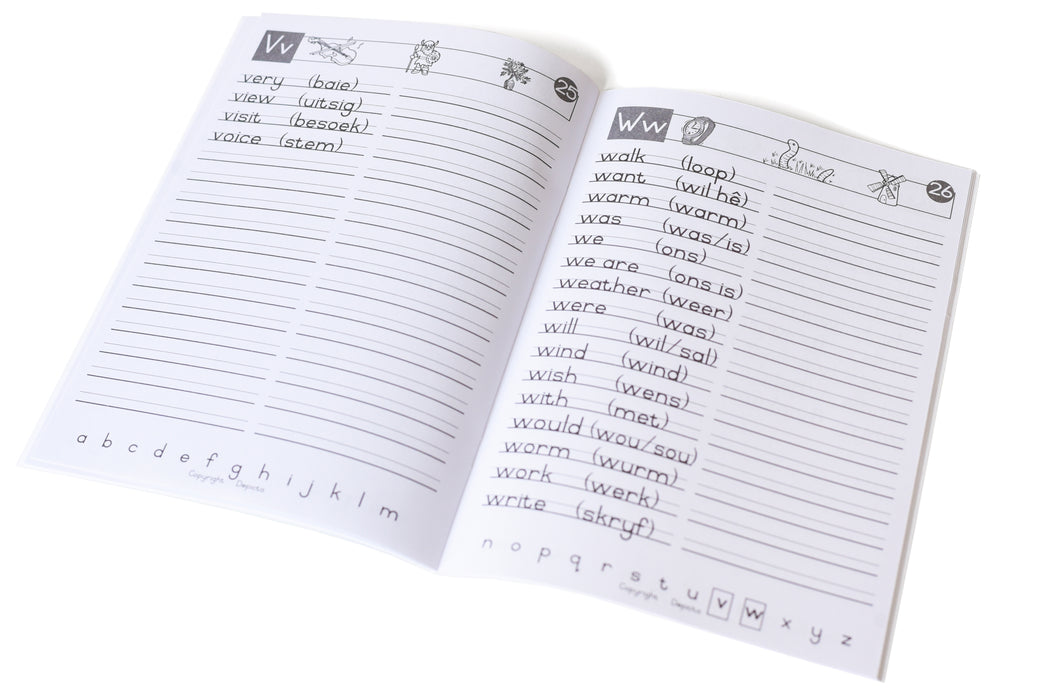 Vv
25
very (baie)
view (uitsig)
visit (besoek)
voice (stem)
a b c d e f g h i j k l m
Copyright Depicta
Ww
26
walk (loop)
want (wil hê)
warm (warm)
was (was/is)
we (ons)
we are (ons is)
weather (weer)
were (was)
will (wil/sal)
wind (wind)
wish (wens)
with (met)
would (wou/sou)
worm (wurm)
work (werk)
write (skryf)
n o p q r s t u v w x y z
Copyright Depicta